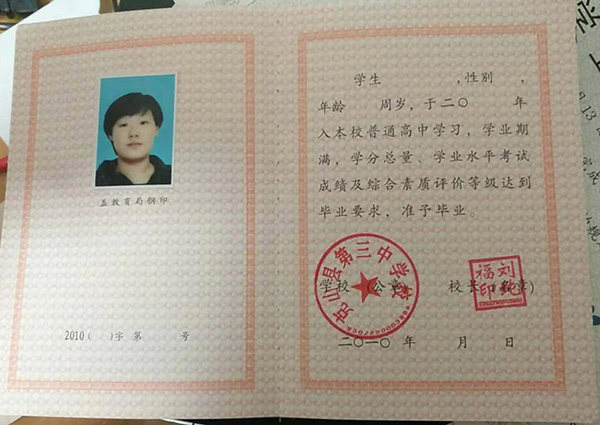 盖教育局钢印
2010( )字 第 号
学生 ,性别 ,
年龄 周岁,于二〇 年
入本校普通高中学习,学业期
满,学分总量、学业水平考试
成绩及综合素质评价等级达到
毕业要求,准予毕业。
山县第三中学校
刘
福印
学校 (公章) 校长 (签章)
二〇一〇 年 月 日